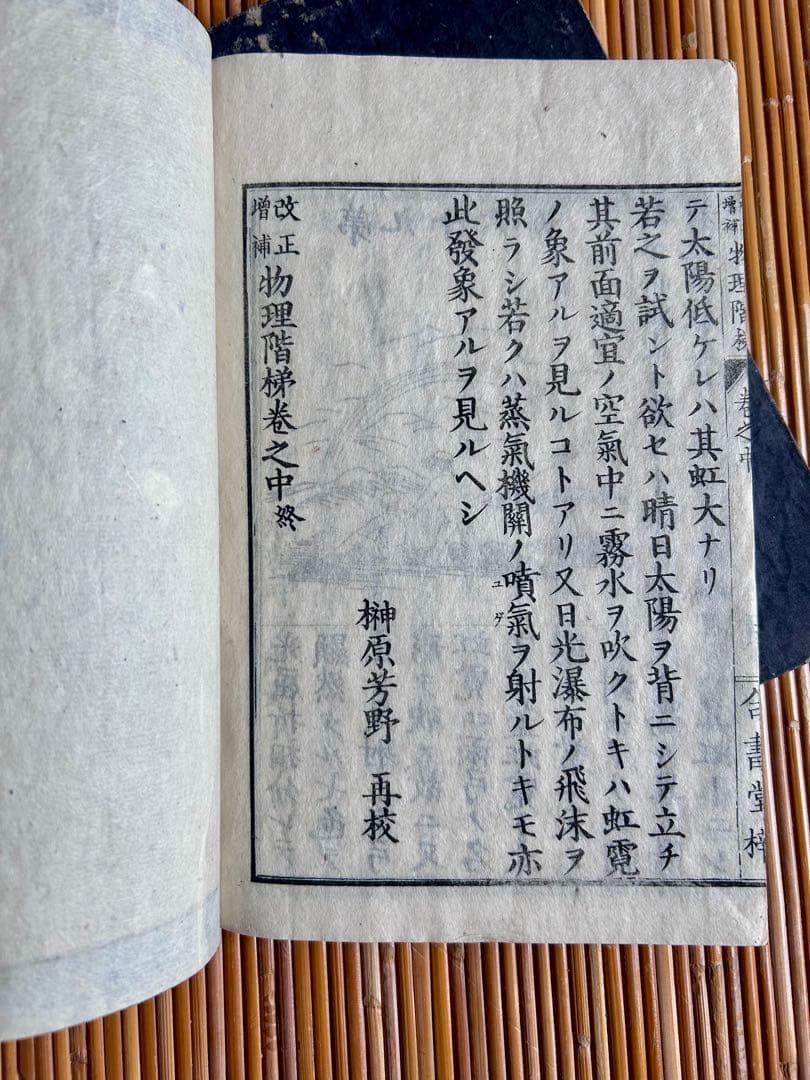 増補物理階梯
卷之中
合書堂梓
テ太陽低ケレハ其虹大ナリ
若之ヲ試ント欲セハ晴日太陽ヲ背ニシテ立チ
其前面適宜ノ空氣中ニ霧水ヲ吹クトキハ虹霓
ノ象アルヲ見ルコトアリ又日光瀑布ノ飛沫ヲ
照ラシ若クハ蒸氣機關ノ噴氣ヲ射ルトキモ亦
ユゲ
此發象アルヲ見ルヘシ
榊原芳野 再校
改正増補物理階梯卷之中終